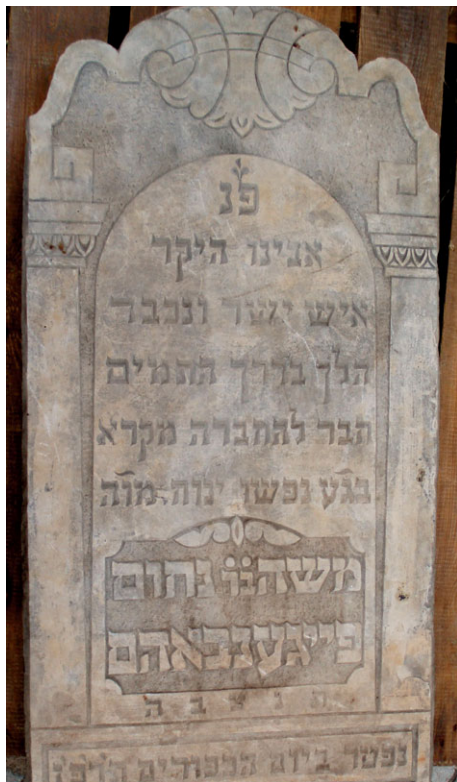 פ״נ
אבינו היקר
איש ישר ונכבד
הלך בדרך התמים
חבר להחברה מקרא
בג״ע נפשו ינוח מו״ה
משה ב״ר נחום
פייגענבאהם
ת נ צ ב ה
נפטר ביום הכפורים